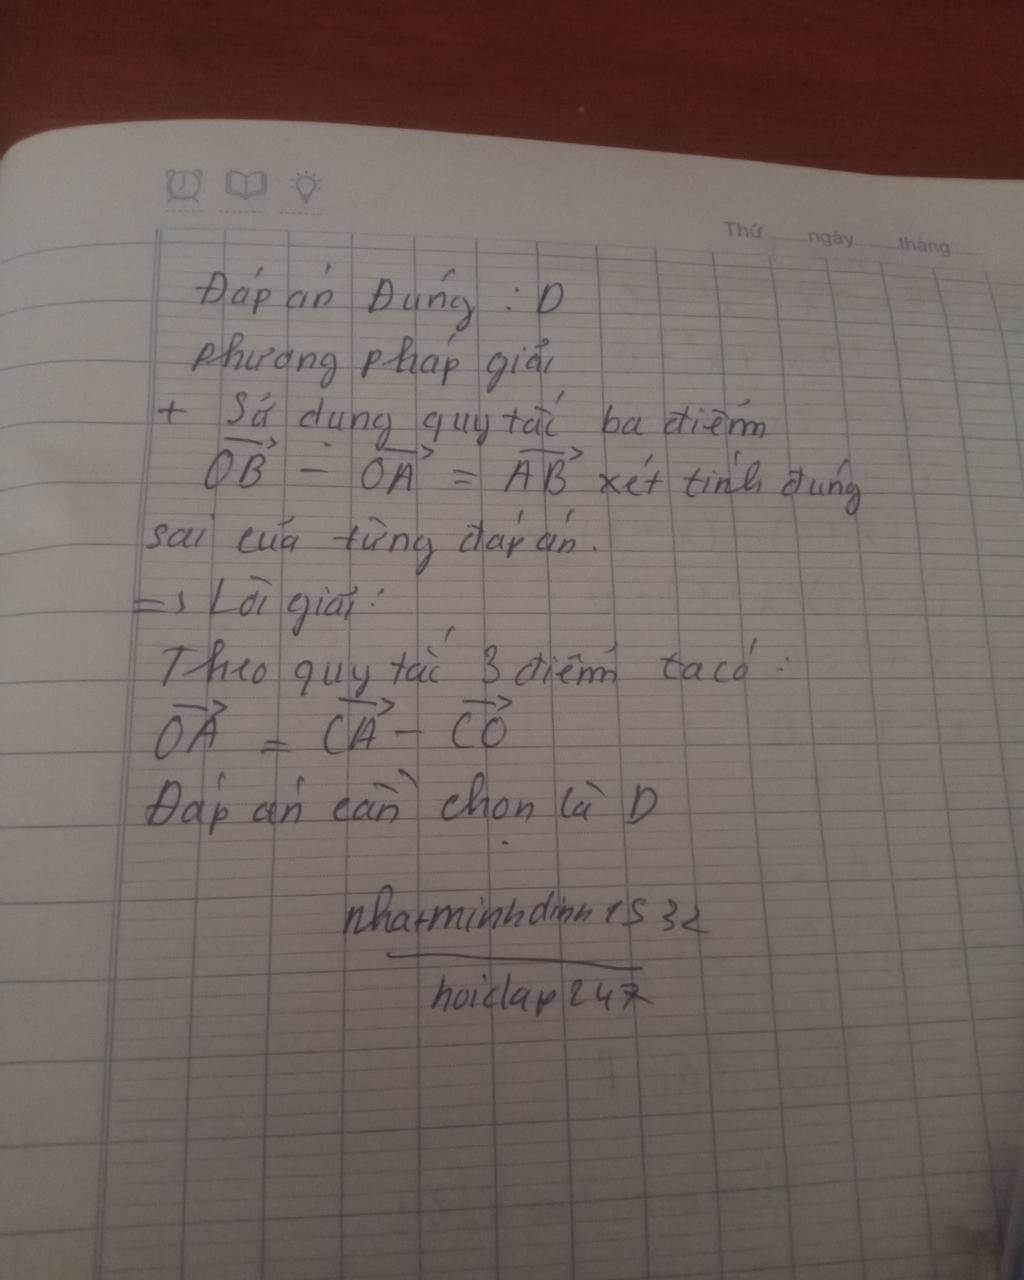 Thứ ngày tháng
Đáp án Đúng : D
phương pháp giải
+ Sử dụng quy tắc ba điểm
OB→ - OA→ = AB→ xét tính đúng
sai của từng đáp án.
=> Lời giải:
Theo quy tắc 3 điểm ta có :
OA→ = CA→ - CO→
Đáp án cần chọn là D
nhatminhdinh1532
hoidap247